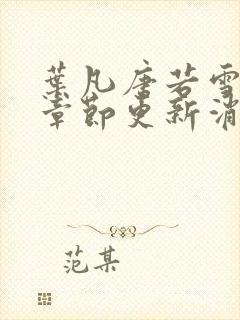 葉凡唐若雪
章節更新消
范某